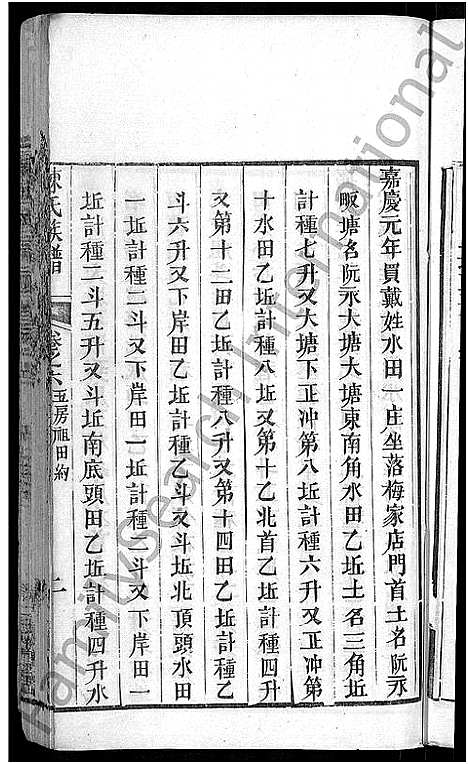 嘉慶元年買戴姓水田一庄坐落梅家店門首土名阮氶
畈塘名阮氶大塘大塘東南角水田乙坵土名三角坵
計種七升又大塘下正冲第八坵計種六升又正冲第
十水田乙坵計種八坵又第十乙北首乙坵計種四升
又第十二田乙坵計種八升又第十四田乙坵計種乙
斗六升又下岸田乙坵計種乙斗又斗坵北頂頭水田
一坵計種二斗又下岸田一坵計種二斗又下岸田一
坵計種二斗五升又斗坵南底頭田乙坵計種四升水
陳氏族譜 卷之六 五房祖田約 二
FamilySearch International